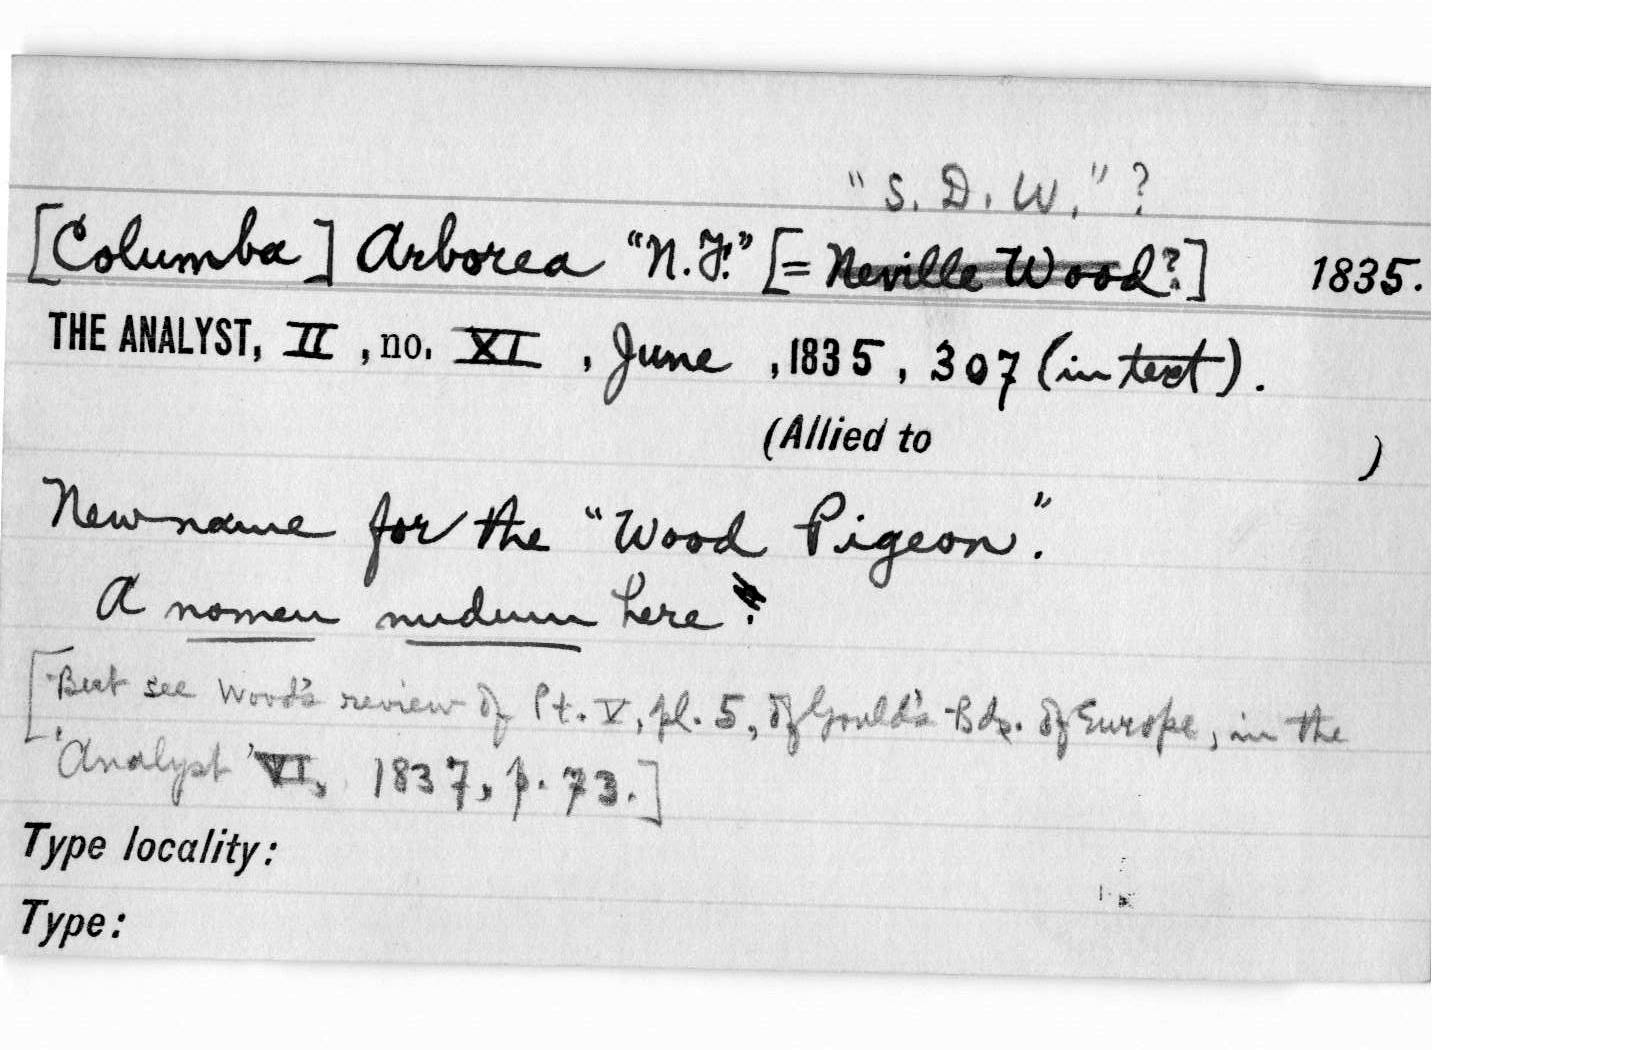 "S. D. W." ?
[Columba] Arborea "N. F." [= Neville Wood?] 1835.
THE ANALYST, II, no. XI, June, 1835, 307 (in text).
(Allied to )
New name for the "Wood Pigeon".
A nomen nudum here.
[But see Wood's review of Pt. V, pl. 5, of Gould's Bds. of Europe, in the
'Analyst' VI, 1837, p. 73.]
Type locality:
Type: